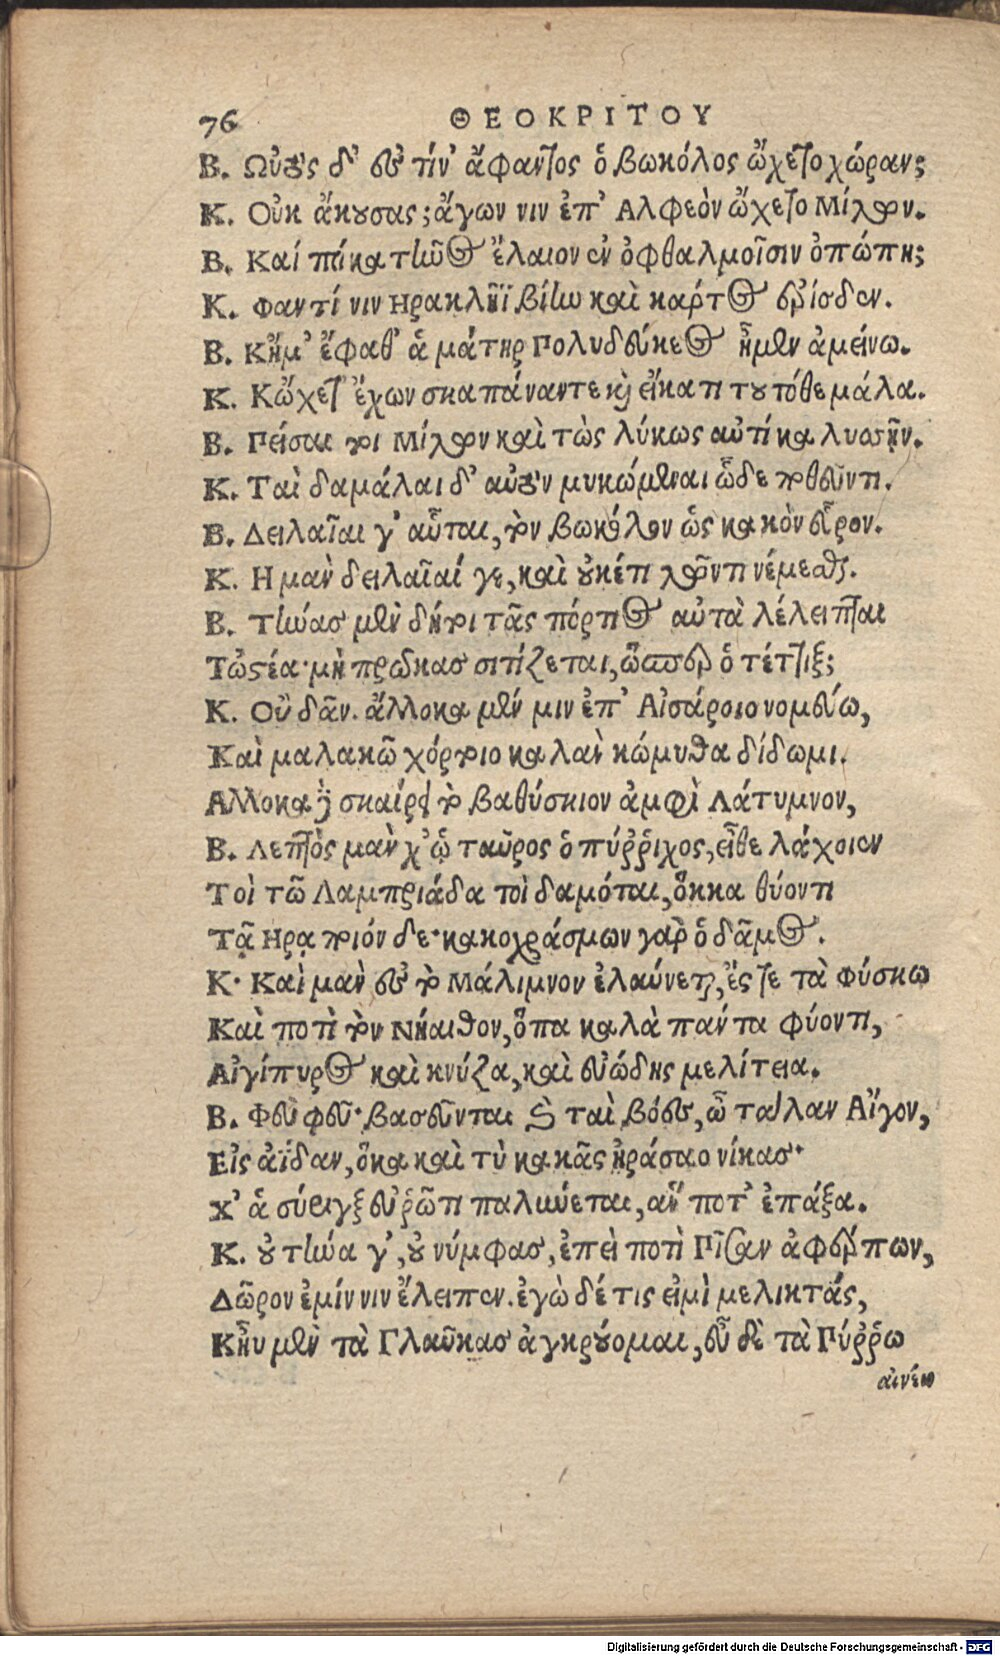 76 ΘΕΟΚΡΙΤΟΥ
Β. Ωὐτὸς δ' ἐς τίν' ἄφαντος ὁ βωκόλος ᾤχετο χώραν;
Κ. Οὐκ ἄκουσας; ἄγων νιν ἐπ' Αλφεὸν ᾤχετο Μίλων.
Β. Καί πόκα τῆνος ἔλαιον ἐν ὀφθαλμοῖσιν ὀπώπη;
Κ. Φαντί νιν Ηρακλῆϊ βίην καὶ κάρτος ἐρίσδεν.
Β. Κἤμ' ἔφαθ' ἁ μάτηρ Πολυδεύκεος ἦμεν ἀμείνω.
Κ. Κᾤχετ' ἔχων σκαπάναν τε καὶ εἴκατι τουτόθε μάλα.
Β. Πείσαι τοι Μίλων καὶ τὼς λύκως αὐτίκα λυσσῆν.
Κ. Ταὶ δαμάλαι δ' αὐτὸν μυκώμεναι ὧδε ποθεῦντι.
Β. Δειλαῖαι γ' αὗται, τὸν βωκόλον ὡς κακὸν εὗρον.
Κ. Η μὰν δειλαῖαί γε, καὶ οὐκέτι λῶντι νέμεσθαι.
Β. Τήνας μὲν δή τοι τᾶς πόρτιος αὐτὰ λέλειπται
Τὠστέα· μὴ πρῶκας σιτίζεται, ὥσπερ ὁ τέτтιξ;
Κ. Οὒ δᾶν. ἄλλοκα μέν μιν ἐπ' Αἰσάροιο νομεύω,
Καὶ μαλακῶ χόρτοιο καλὰν κώμυθα δίδωμι.
Αλλοκα δὲ σκαίρει τὸ βαθύσκιον ἀμφὶ Λάτυμνον,
Β. Λεπτὸς μὰν χ' ᾡ ταῦρος ὁ πύῤῥιχος, εἴθε λάχοιεν
Τοὶ τῶ Λαμπριάδα τοὶ δαμόται, ὅκκα θύοντι
Τᾷ Ηρᾳ τοιόν δε· κακοχράσμων γὰρ ὁ δᾶμος.
Κ. Καὶ μὰν ἐς τὸ Μάλιμνον ἐλαύνεται, ἔς τε τὰ Φύσκω
Καὶ ποτὶ τὸν Νήαιθον, ὅπα καλὰ πάντα φύοντι,
Αἰγίπυρος καὶ κνύζα, καὶ εὐώδης μελίτεια.
Β. Φεῦ φεῦ· βασεῦνται καὶ ταὶ βόες, ὦ τάλαν Αἴγον,
Εἰς ἀΐδαν, ὅκα καὶ τὺ κακᾶς ἠράσαο νίκας·
Χ' ἁ σύριγξ εὐρῶτι παλύνεται, ἅν ποτ' ἐπάξα.
Κ. Οὐ τήνα γ', οὐ νύμφας, ἐπεὶ ποτὶ Πῖσαν ἀφέρπων,
Δῶρον ἐμίν νιν ἔλειπεν. ἐγὼ δέ τις εἰμὶ μελικτάς,
Κἢν μὲν τὰ Γλαύκας ἀγκρούομαι, εὖ δὲ τὰ Πύῤῥω
αἰνέω
Digitalisierung gefördert durch die Deutsche Forschungsgemeinschaft - DFG